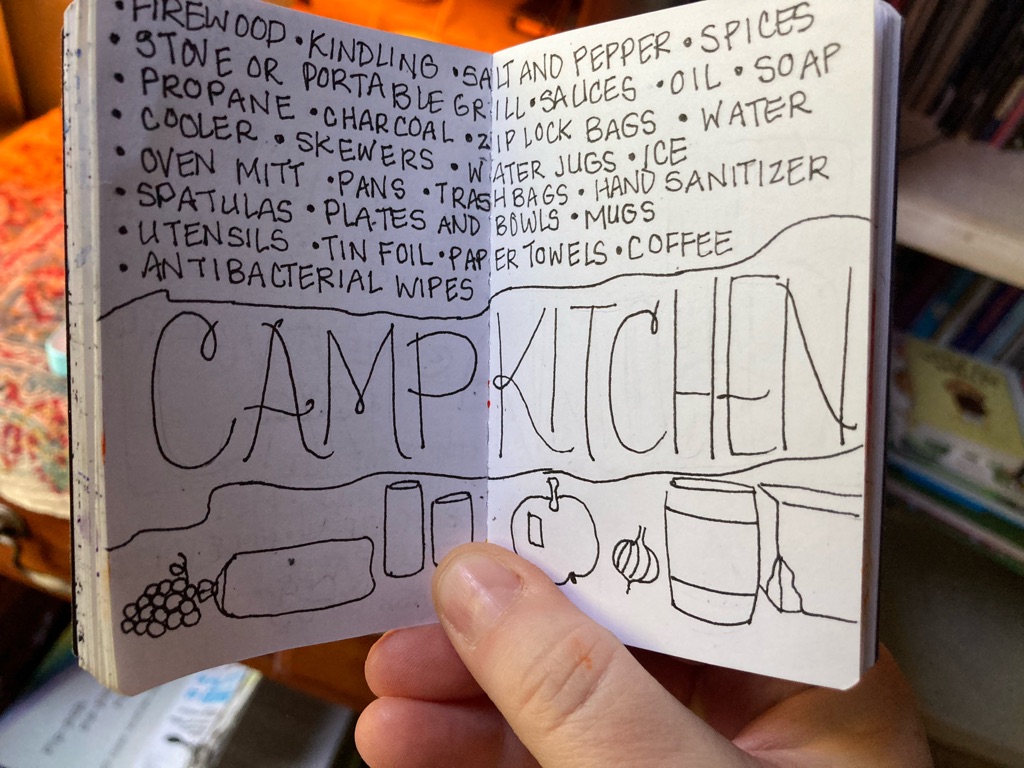 •FIREWOOD •KINDLING •SALT AND PEPPER •SPICES
•STOVE OR PORTABLE GRILL •SAUCES •OIL •SOAP
•PROPANE •CHARCOAL •ZIPLOCK BAGS • WATER
•COOLER •SKEWERS •WATER JUGS •ICE
•OVEN MITT •PANS •TRASH BAGS •HAND SANITIZER
•SPATULAS •PLATES AND BOWLS •MUGS
•UTENSILS •TIN FOIL •PAPER TOWELS •COFFEE
•ANTIBACTERIAL WIPES
CAMP KITCHEN